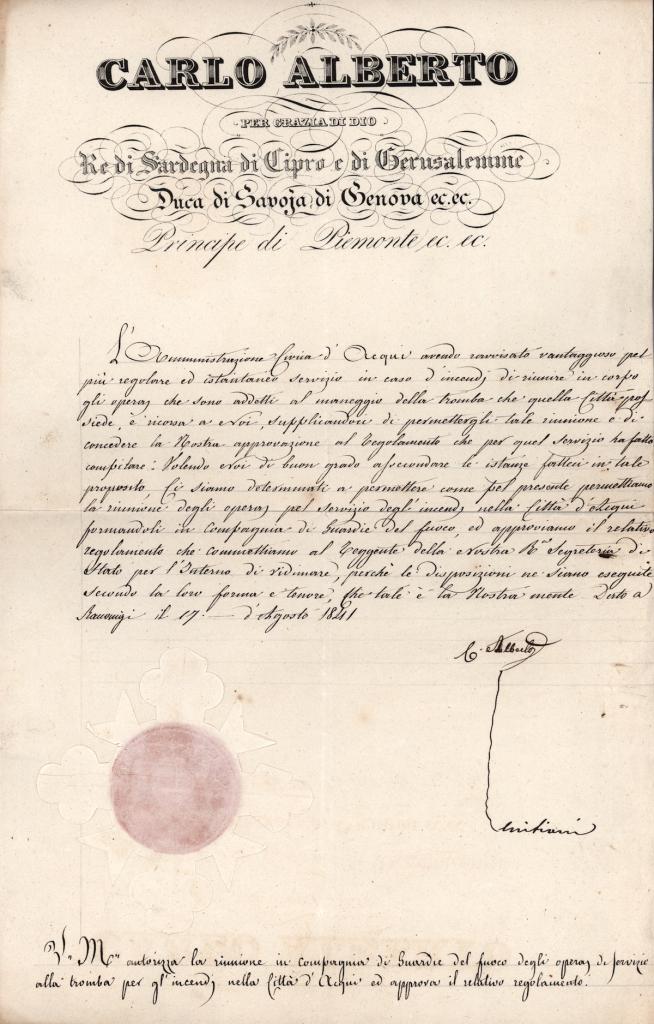 CARLO ALBERTO
PER GRAZIA DI DIO
Re di Sardegna di Cipro e di Gerusalemme
Duca di Savoja, di Genova ec. ec.
Principe di Piemonte ec. ec.
L'Amministrazione Civica d'Acqui avendo ravvisato vantaggioso pel
più regolare ed istantaneo servizio in caso d'incendj di riunire in corpo
gli operaj che sono addetti al maneggio della tromba che quella Città pos
siede, è ricorsa a Noi, supplicandoci di permettergli tale riunione e di
concedere la Nostra approvazione al Regolamento che per quel servizio ha fatto
compilare: Volendo Noi di buon grado assecondare le istanze fatteci in tale
proposito, Ci siamo determinati a permettere come pel presente permettiamo
la riunione degli operaj pel servizio degl'incendj nella Città d'Acqui
formandoli in Compagnia di Guardie del fuoco, ed approviamo il relativo
regolamento che commettiamo al Reggente della Nostra Ra. Segreteria di
Stato per l'Interno di vidimare, perchè le disposizioni ne siano eseguite
secondo la loro forma e tenore, Che tale è la Nostra mente. Dato a
Racconigi il 17. d'Agosto 1841
C. Alberto
V. M. autorizza la riunione in compagnia di Guardie del fuoco degli operaj di servizio
alla tromba per gl'incendj nella Città d'Acqui ed approva il relativo regolamento.